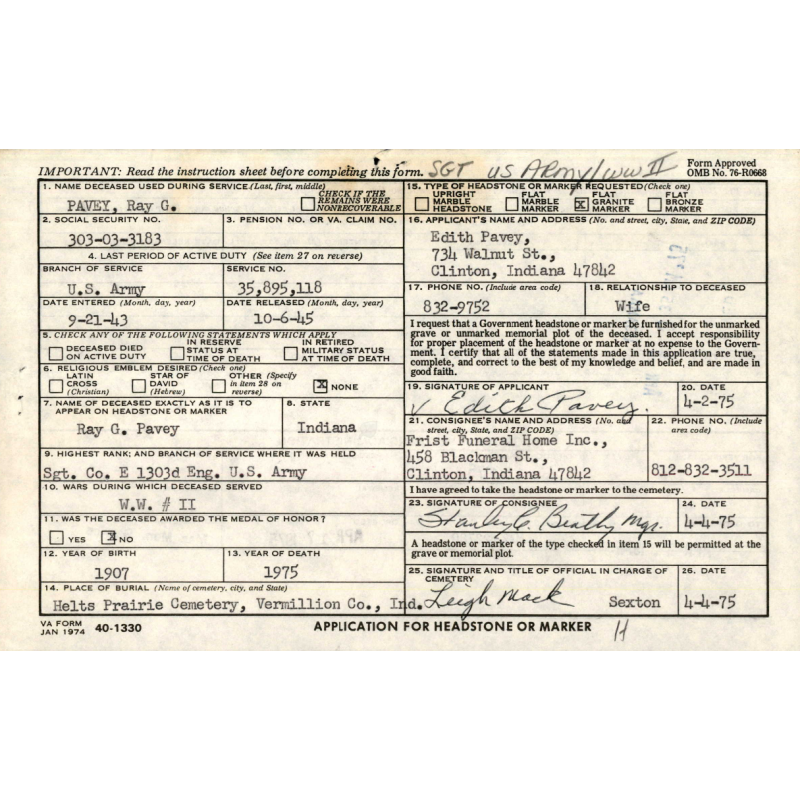 IMPORTANT: Read the instruction sheet before completing this form. SGT US ARMY/WW II
Form Approved
OMB No. 76-R0668
1. NAME DECEASED USED DURING SERVICE (Last, first, middle)
PAVEY, Ray G.
CHECK IF THE
REMAINS WERE
NONRECOVERABLE
2. SOCIAL SECURITY NO.
303-03-3183
3. PENSION NO. OR VA. CLAIM NO.
4. LAST PERIOD OF ACTIVE DUTY (See item 27 on reverse)
BRANCH OF SERVICE
U.S. Army
SERVICE NO.
35,895,118
DATE ENTERED (Month, day, year)
9-21-43
DATE RELEASED (Month, day, year)
10-6-45
5. CHECK ANY OF THE FOLLOWING STATEMENTS WHICH APPLY
DECEASED DIED
ON ACTIVE DUTY
IN RESERVE
STATUS AT
TIME OF DEATH
IN RETIRED
MILITARY STATUS
AT TIME OF DEATH
6. RELIGIOUS EMBLEM DESIRED (Check one)
LATIN
CROSS
(Christian)
STAR OF
DAVID
(Hebrew)
OTHER (Specify
in item 28 on
reverse)
X NONE
7. NAME OF DECEASED EXACTLY AS IT IS TO
APPEAR ON HEADSTONE OR MARKER
Ray G. Pavey
8. STATE
Indiana
9. HIGHEST RANK; AND BRANCH OF SERVICE WHERE IT WAS HELD
Sgt. Co. E 1303d Eng. U.S. Army
10. WARS DURING WHICH DECEASED SERVED
W.W. # II
11. WAS THE DECEASED AWARDED THE MEDAL OF HONOR?
YES X NO
12. YEAR OF BIRTH
1907
13. YEAR OF DEATH
1975
14. PLACE OF BURIAL (Name of cemetery, city, and State)
Helts Prairie Cemetery, Vermillion Co., Ind.
15. TYPE OF HEADSTONE OR MARKER REQUESTED (Check one)
UPRIGHT
MARBLE
HEADSTONE
FLAT
MARBLE
MARKER
X FLAT
GRANITE
MARKER
FLAT
BRONZE
MARKER
16. APPLICANT'S NAME AND ADDRESS (No. and street, city, State, and ZIP CODE)
Edith Pavey,
734 Walnut St.,
Clinton, Indiana 47842
17. PHONE NO. (Include area code)
832-9752
18. RELATIONSHIP TO DECEASED
Wife
I request that a Government headstone or marker be furnished for the unmarked
grave or unmarked memorial plot of the deceased. I accept responsibility
for proper placement of the headstone or marker at no expense to the Govern-
ment. I certify that all of the statements made in this application are true,
complete, and correct to the best of my knowledge and belief, and are made in
good faith.
19. SIGNATURE OF APPLICANT
√ Edith Pavey.
20. DATE
4-2-75
21. CONSIGNEE'S NAME AND ADDRESS (No. and
street, city, State, and ZIP CODE)
Frist Funeral Home Inc.,
458 Blackman St.,
Clinton, Indiana 47842
22. PHONE NO. (Include
area code)
812-832-3511
I have agreed to take the headstone or marker to the cemetery.
23. SIGNATURE OF CONSIGNEE
Stanley C. Beatty Mgr.
24. DATE
4-4-75
A headstone or marker of the type checked in item 15 will be permitted at the
grave or memorial plot.
25. SIGNATURE AND TITLE OF OFFICIAL IN CHARGE OF
CEMETERY
Leigh Mack Sexton
26. DATE
4-4-75
VA FORM
JAN 1974 40-1330
APPLICATION FOR HEADSTONE OR MARKER
H